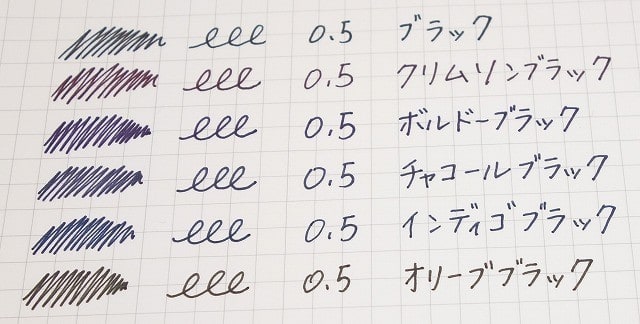 eee 0.5 ブラック
eee 0.5 クリムソンブラック
eee 0.5 ボルドーブラック
eee 0.5 チャコールブラック
eee 0.5 インディゴブラック
eee 0.5 オリーブブラック